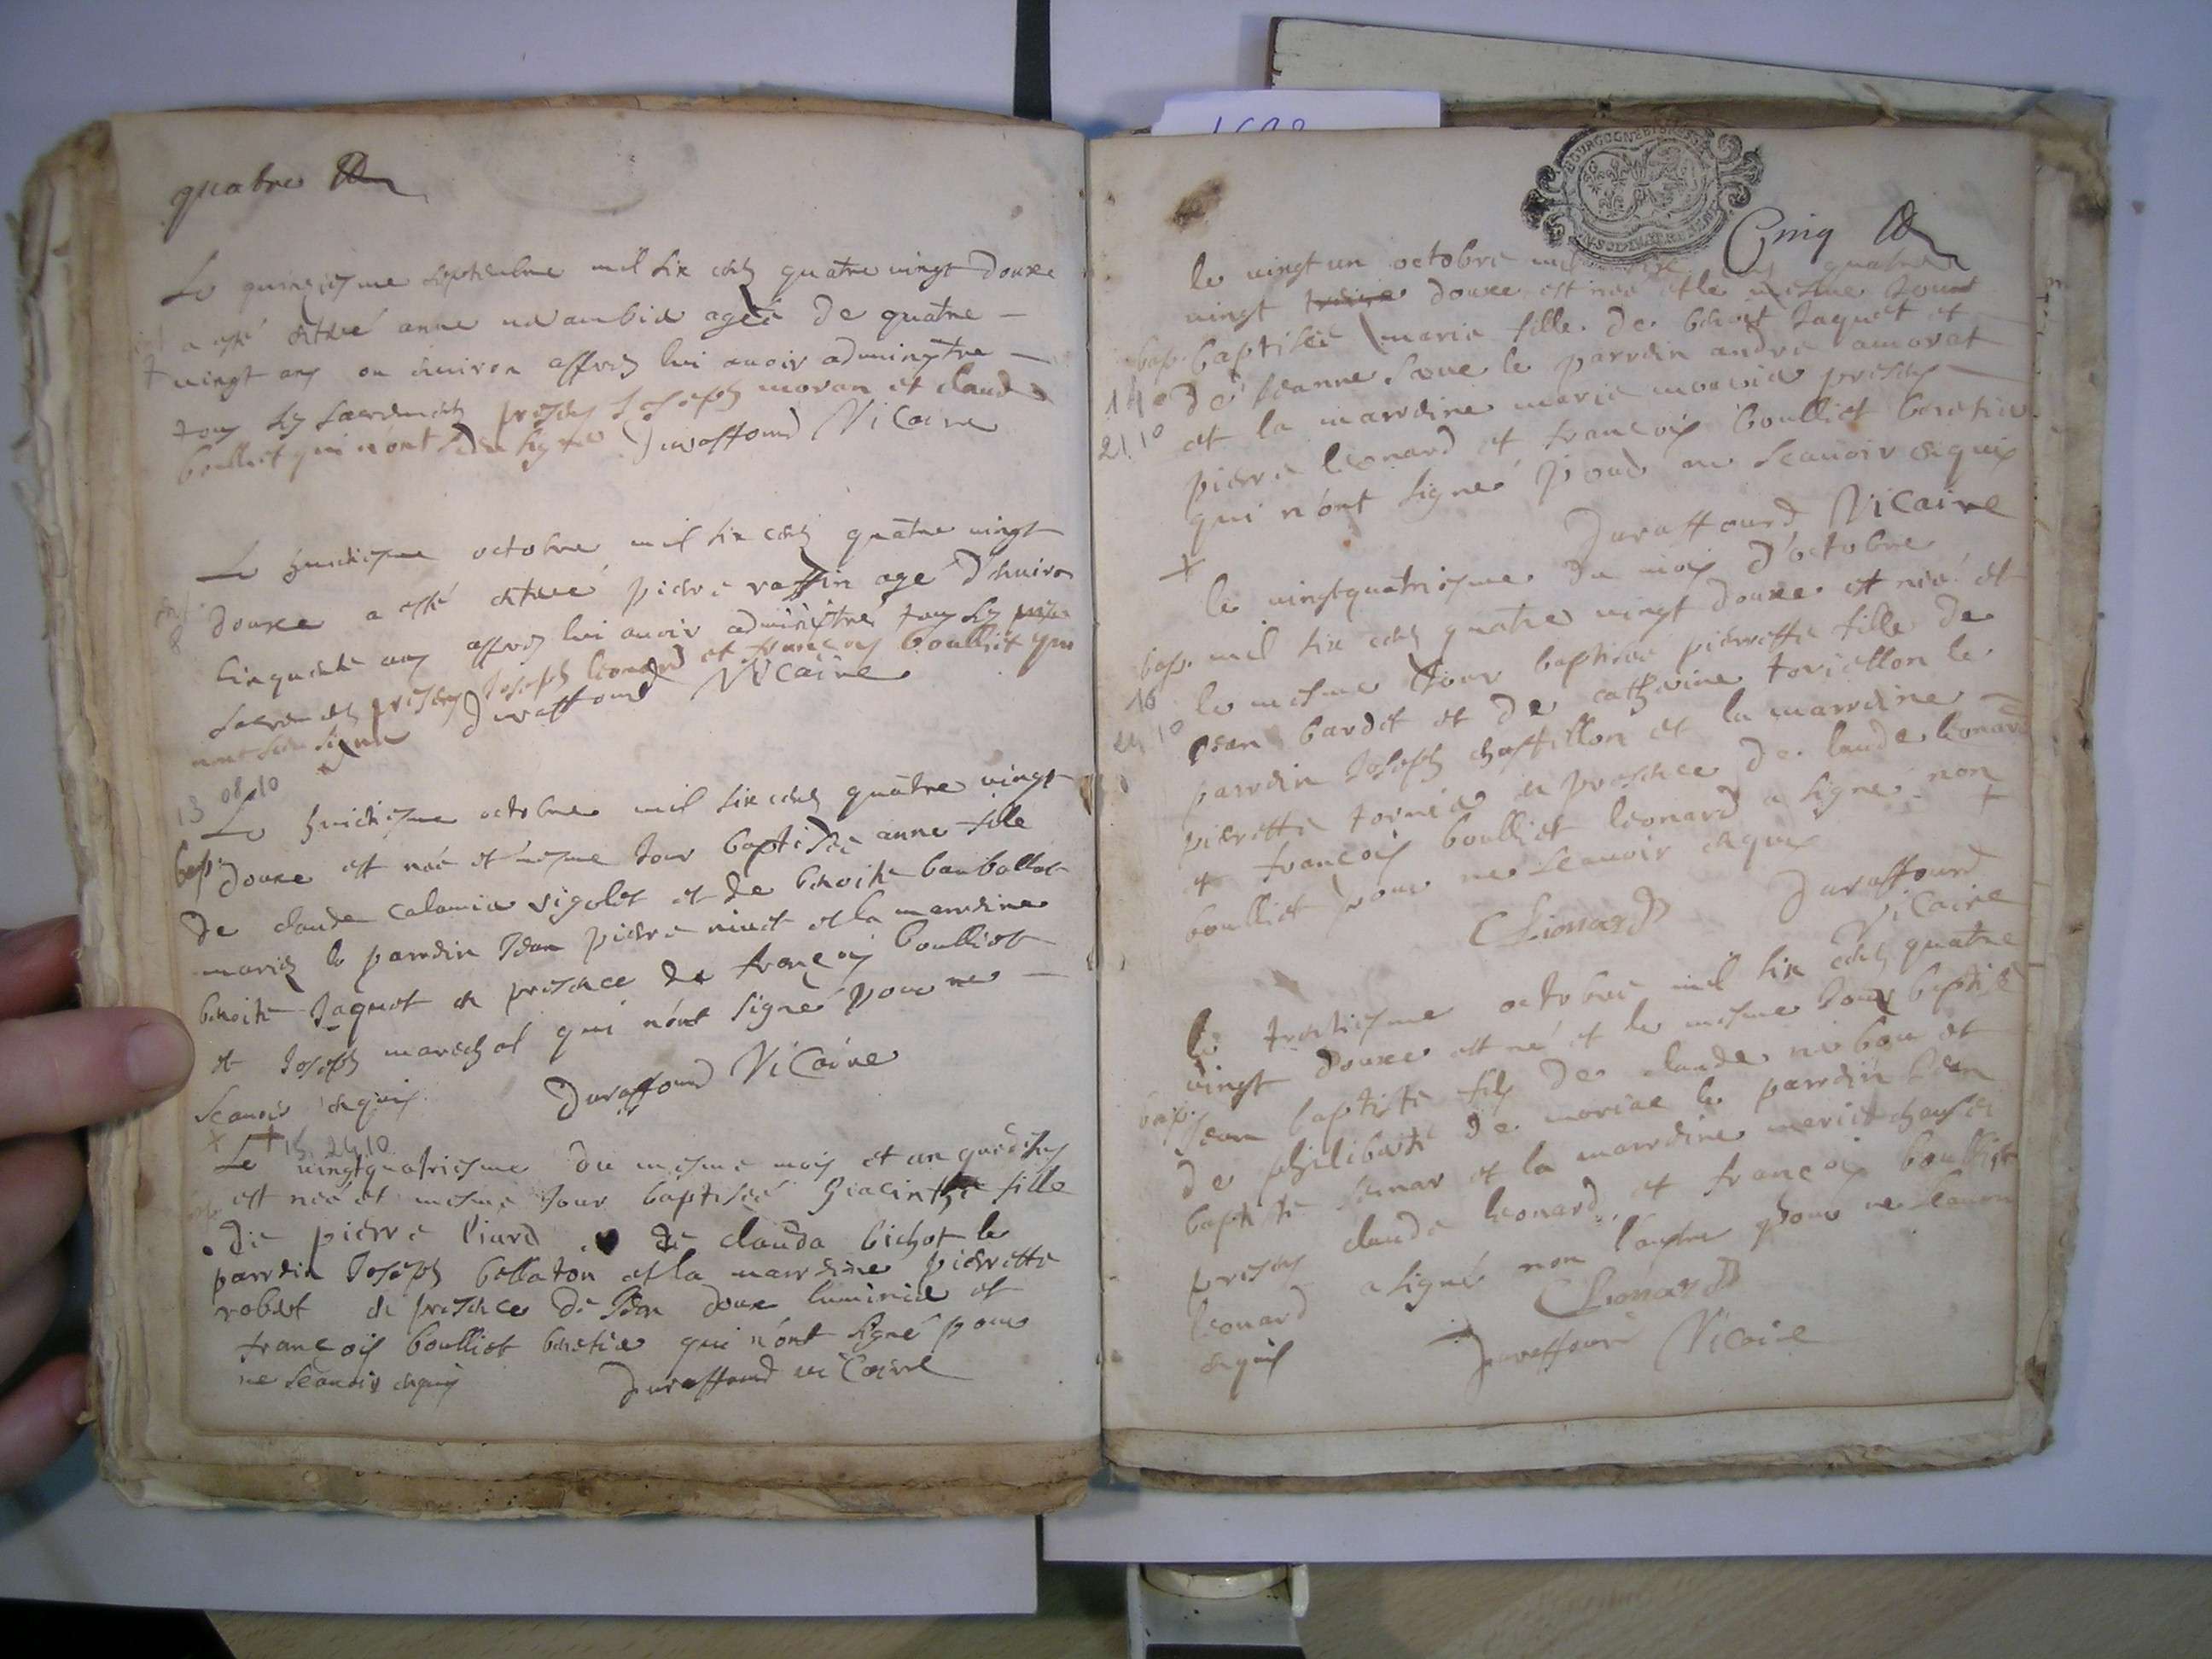 quatre
Le quinziesme septembre mil six cens quatre vingt douze
a esté entere anne agée de quatre
vingt ans ou environ appres lui avoir administre
tous les sacremens presens Joseph moran et claude
boulliet qui n'ont signe Duraffourd Vicaire
Le huictiesme octobre mil six cens quatre vingt
douze a esté enteré pierre raffin agé d'environ
cinquante ans appres lui avoir administré tous les
sacremens presens Joseph leonard et françois boulliet qui
n'ont signe Duraffourd Vicaire
13 08.10
Le huictiesme octobre mil six cens quatre vingt
bap. douze est née et mesme Jour baptisée anne fille
de claude vigolet et de benoite
mariés le parrdin Jean pierre et la marrdine
benoite Jaquet en presence de françois boulliet
et Joseph marechal qui n'ont signé pour ne
scavoir enquis Duraffourd Vicaire
15 24.10
Le vingtquatriesme du mesme mois et an que dessus
est née et mesme Jour baptisée Giacinthe fille
de pierre et de clauda bichot le
parrdin Joseph bellaton et la marrdine pierrette
robert en presence de Jean doux et
françois boulliet qui n'ont signé pour
ne scavoir enquis Duraffourd vicaire
BOURGOGNE ET BRESSE
Cinq
le vingt un octobre mil six cens quatre
vingt treize douze est née et le mesme Jour
bap. baptisée marie fille de benoit Jaquet et
14 de Jeanne le parrdin andre amorat
21.10 et la marrdine marie presens
pierre leonard et françois boulliet
qui n'ont signé pour ne scavoir enquis
Duraffourd Vicaire
le vingtquatriesme du mois d'octobre
mil six cens quatre vingt douze est née et
bap. le mesme Jour baptisée pierrette fille de
16 Jean bardet et de catherine torvellon le
24.10 parrdin Joseph chastillon et la marrdine
pierrette en presence de claude leonard
et françois boulliet leonard a signe non
boulliet pour ne scavoir enquis
CLionard Duraffourd
Vicaire
le trentiesme octobre mil six cens quatre
vingt douze est né et le mesme Jour baptisé
bap. Jean baptiste fils de claude et
de philiberte de le parrdin Jean
baptiste et la marrdine
presens claude leonard et françois boulliet
leonard a signé non l'autre pour ne scavoir
enquis CLionard
Duraffourd Vicaire